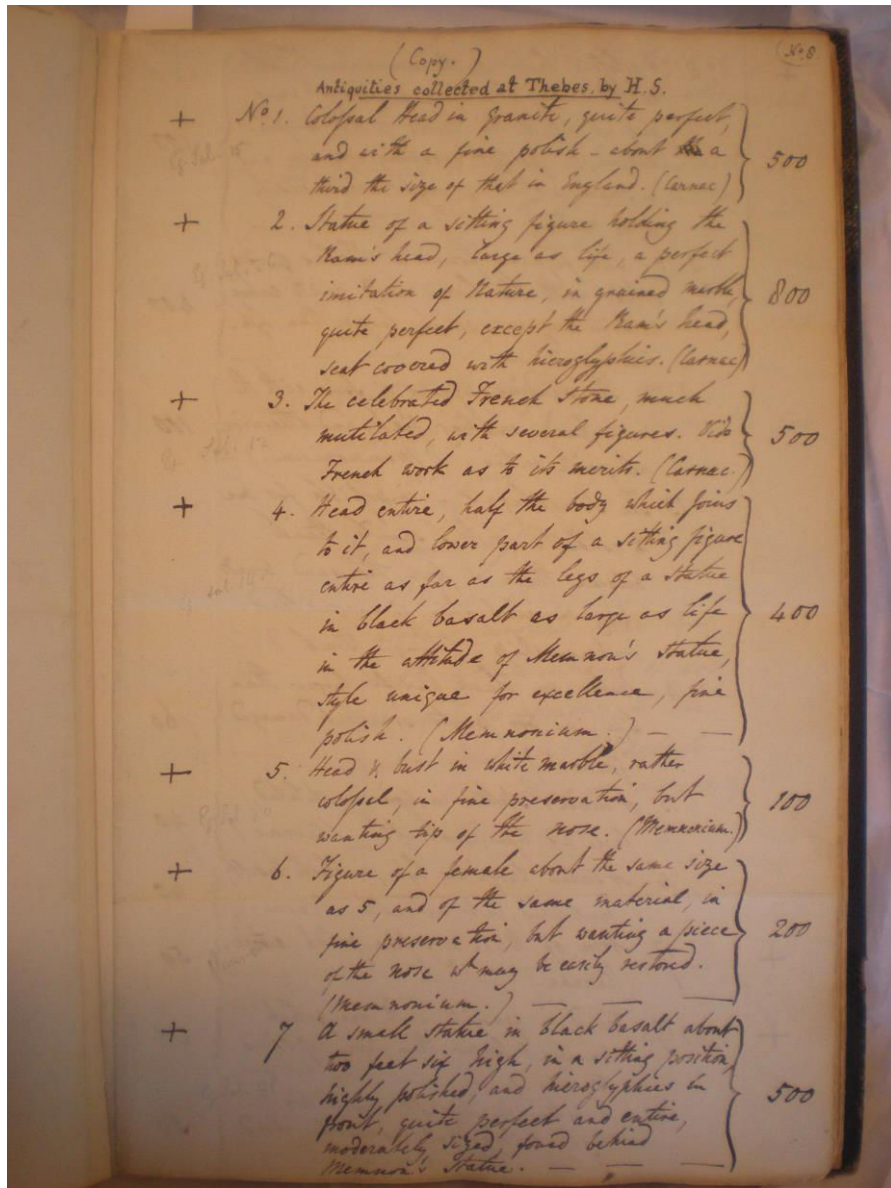 (Copy.)
No. 8.
Antiquities collected at Thebes by H.S.
+ No. 1. Colossal Head in Granite, quite perfect,
and with a fine polish - about a
third the size of that in England. (Carnac) 500
+ 2. Statue of a sitting figure holding the
Ram's head, large as life, a perfect
imitation of Nature, in grained marble,
quite perfect, except the Ram's head,
seat covered with hieroglyphics. (Carnac) 800
+ 3. The celebrated French Stone, much
mutilated, with several figures. Vide
French work as to its merits. (Carnac.) 500
+ 4. Head entire, half the body which joins
to it, and lower part of a sitting figure
entire as far as the legs of a Statue
in black basalt as large as life
in the attitude of Memnon's Statue,
style unique for excellence, fine
polish. (Memnonium.) — — 400
+ 5. Head & bust in white marble, rather
colossal, in fine preservation, but
wanting tip of the nose. (Memnonium.) 100
+ 6. Figure of a female about the same size
as 5, and of the same material, in
fine preservation, but wanting a piece
of the nose wh may be easily restored.
(Memnonium.) — — — 200
+ 7 A small statue in black basalt about
two feet six high, in a sitting position,
highly polished, and hieroglyphics in
front, quite perfect and entire,
moderately sized, found behind
Memnon's Statue. — — — 500